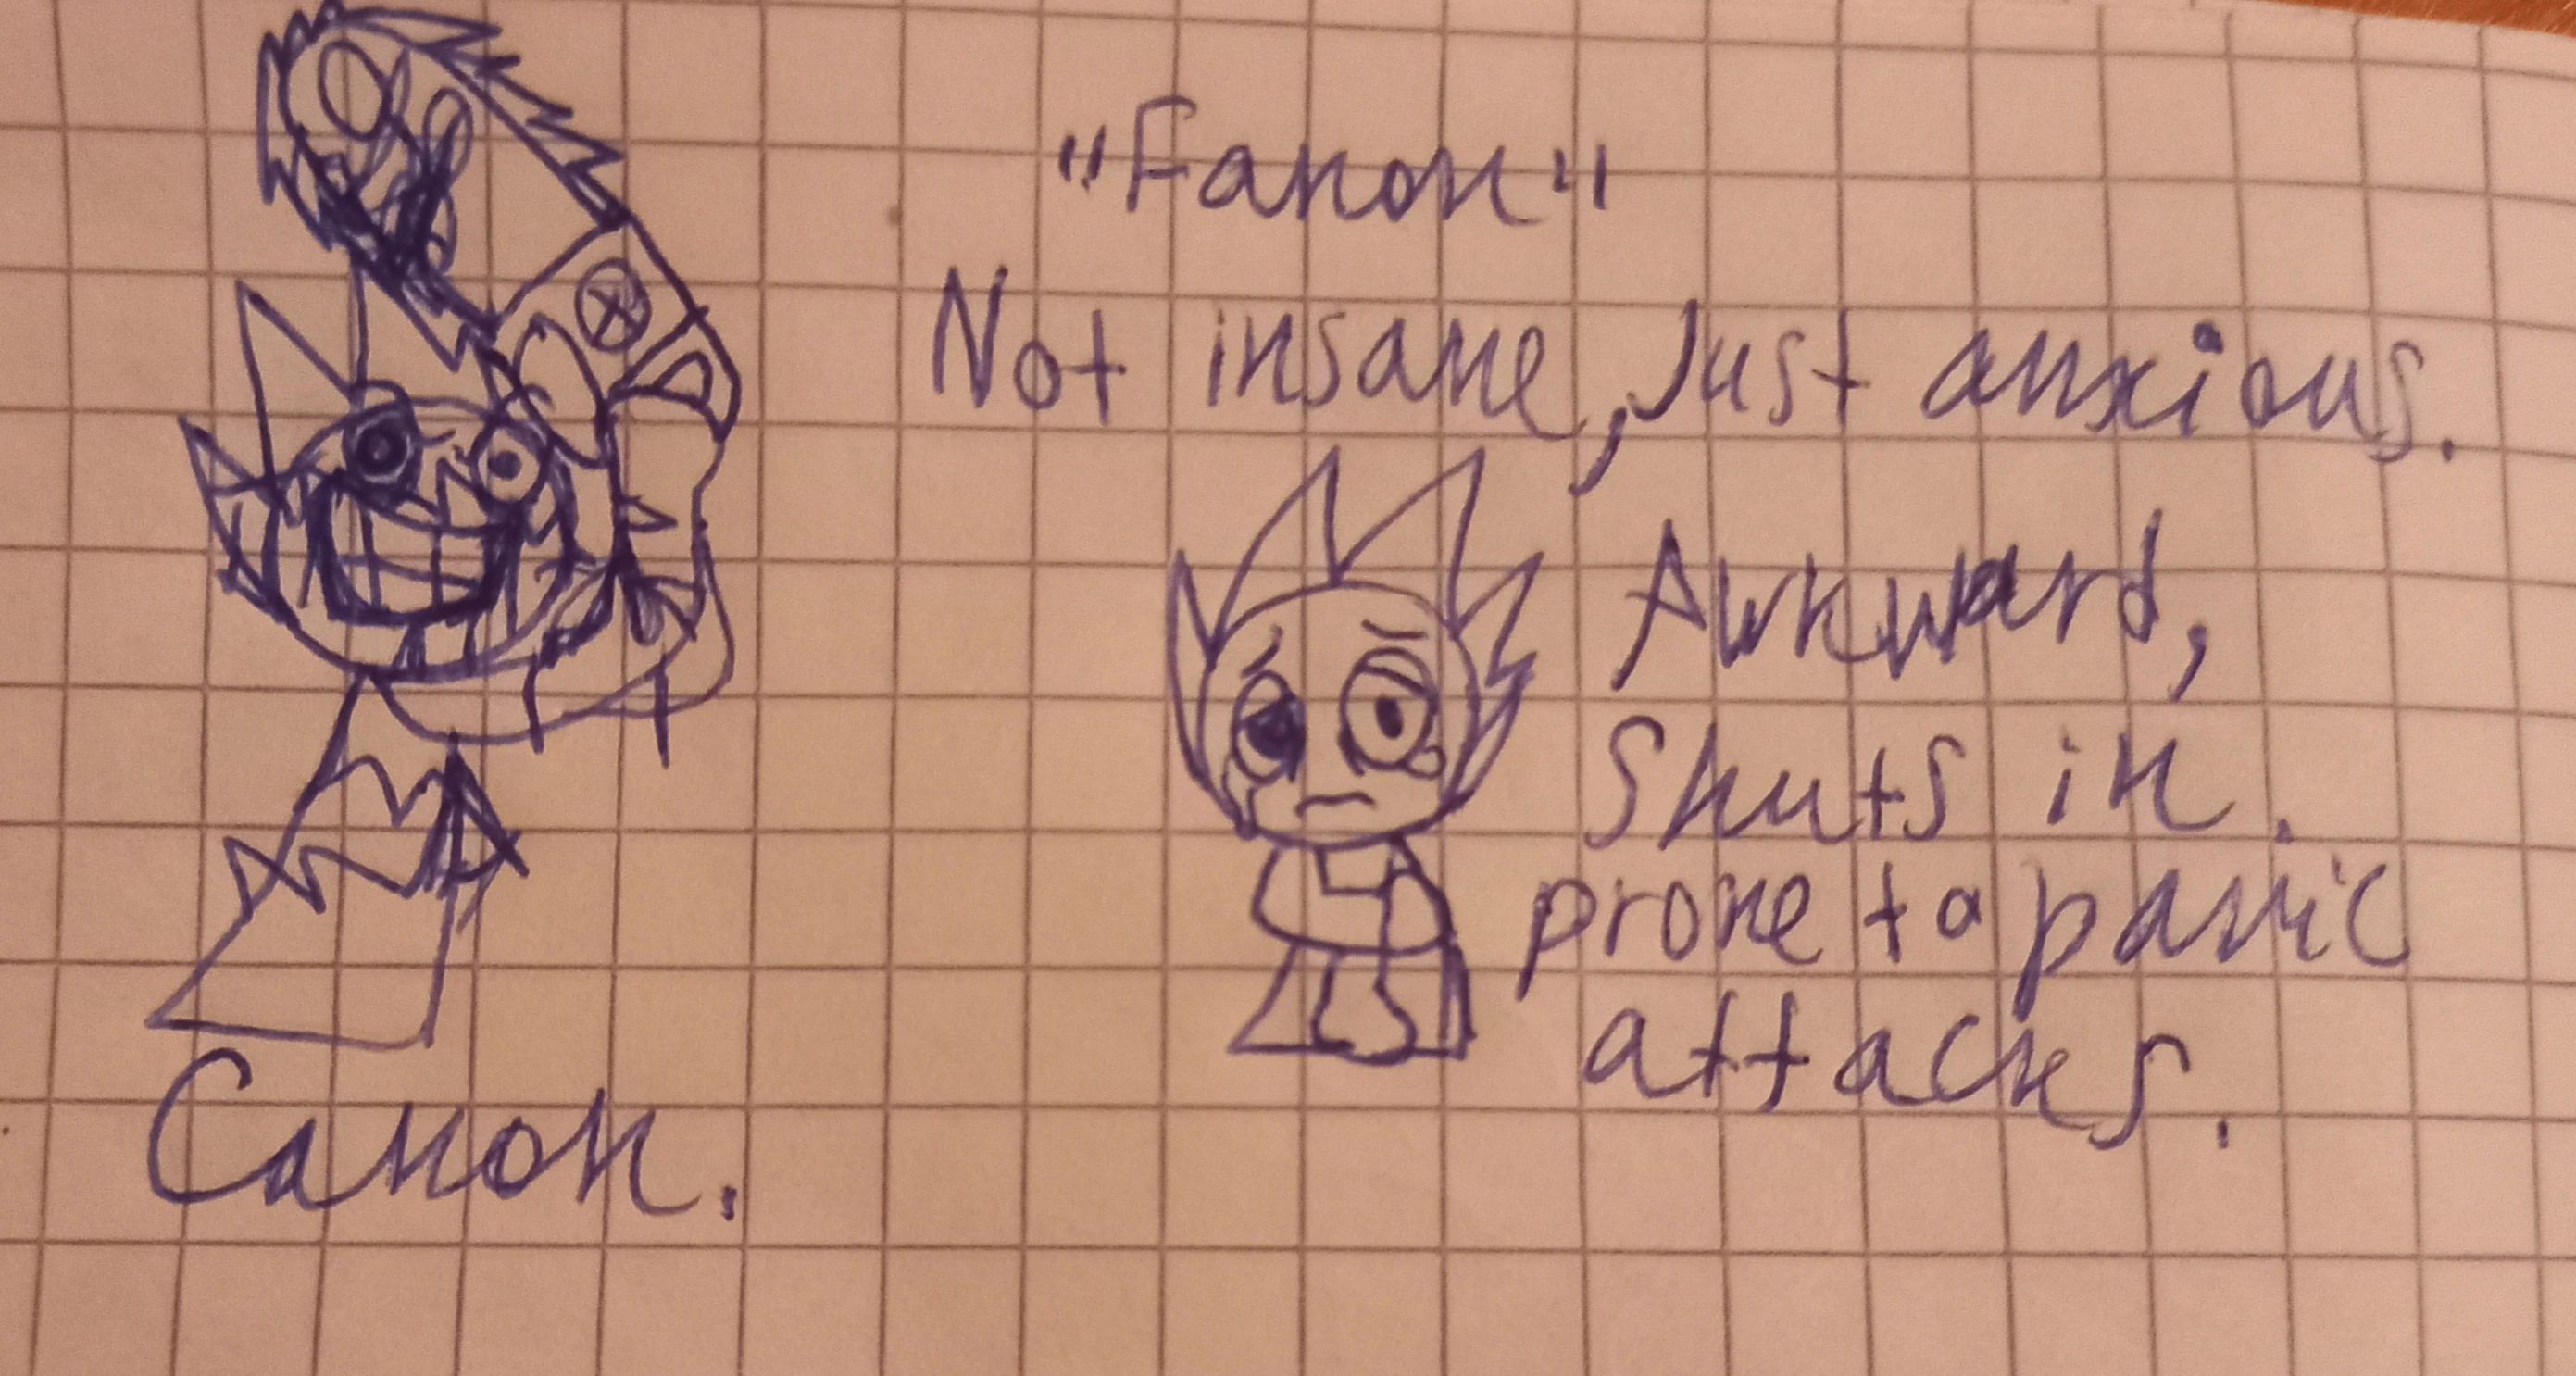 "Fanon"
Not insane, Just anxious.
Awkward,
Shuts in.
prone to panic
attacks.
Canon.